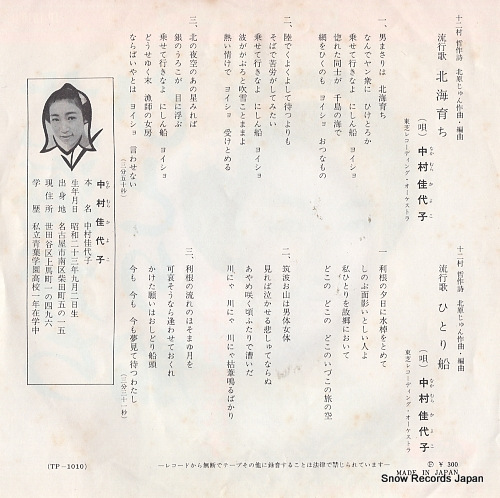 十二村 哲作詩 北原じゅん作曲・編曲
流行歌 北海育ち
(唄) 中村佳代子
なか むら か よ こ
東芝レコーディング・オーケストラ
一、男まさりは 北海育ち
なんでヤン衆に ひけとろか
乗せて行きなよ にしん船 ヨイショ
惚れた同士が 千島の海で
網をひくのも ヨイショ おつなもの
二、陸でくよくよして待つよりも
そばで苦労がしてみたい
乗せて行きなよ にしん船 ヨイショ
波がかぶろと吹雪ことままよ
熱い情けで ヨイショ 受けとめる
三、北の夜空のあの星みれば
銀のうろこが 目に浮ぶ
乗せて行きなよ にしん船 ヨイショ
どうせゆく末 漁師の女房
ならばいやとは ヨイショ 言わせない
(三分五十秒)
十二村 哲作詩 北原じゅん作曲・編曲
流行歌 ひとり船
(唄) 中村佳代子
なか むら か よ こ
東芝レコーディング・オーケストラ
一 利根の夕日に水棹をとめて
しのぶ面影いとしい人よ
私ひとりを故郷において
どこの どこの どこのいづこの旅の空
二、筑波お山は男体女体
見れば泣かせる悲しゅてならぬ
あやめ咲く頃ふたりで漕いだ
川にゃ 川にゃ 川にゃ枯葦鳴るばかり
三、利根の流れのほそまゆ月を
可哀そうなら逢わせておくれ
かけた願いはおしどり船頭
今も 今も 今も夢見て待つわたし
(三分三十一秒)
なか むら か よ こ
中村佳代子
本名 中村佳代子
生年月日 昭和二十三年九月二日生
出身地 名古屋市南区柴田町五の一五
現住所 世田谷区上馬町一の四九六
学歴 私立青葉学園高校一年在学中
(TP-1010)
―レコードから無断でテープその他に録音することは法律で禁じられています―
Ⓟ ¥300
MADE IN JAPAN
Snow Records Japan